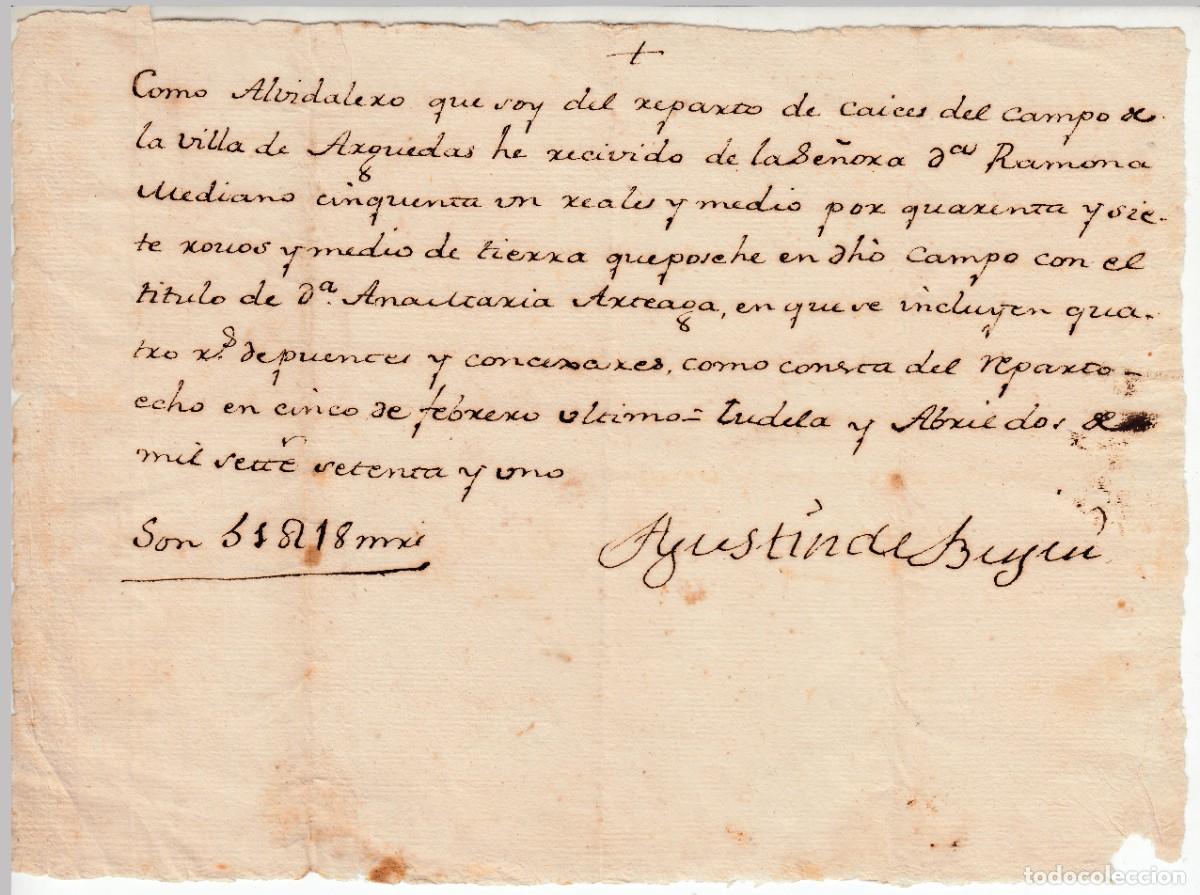 +
Como Alvidalero que soy del reparto de caices del campo de
la villa de Arguedas he recivido de la Señora Dª Ramona
Mediano cinquenta un reales y medio por quarenta y sie-
te rovos y medio de tierra que posehe en dho Campo con el
titulo de Dª. Ana Maria Arteaga, en que se incluyen qua-
tro rs. de puentes y concexares, como consta del reparto
echo en cinco de febrero ultimo = Tudela y Abril dos de
mil sette setenta y uno
Son 51 R 18 mrs
Agustin de
todocoleccion